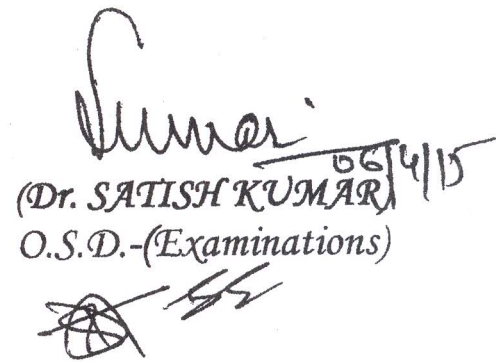 Kumar
06/4/15
(Dr. SATISH KUMAR)
O.S.D.-(Examinations)